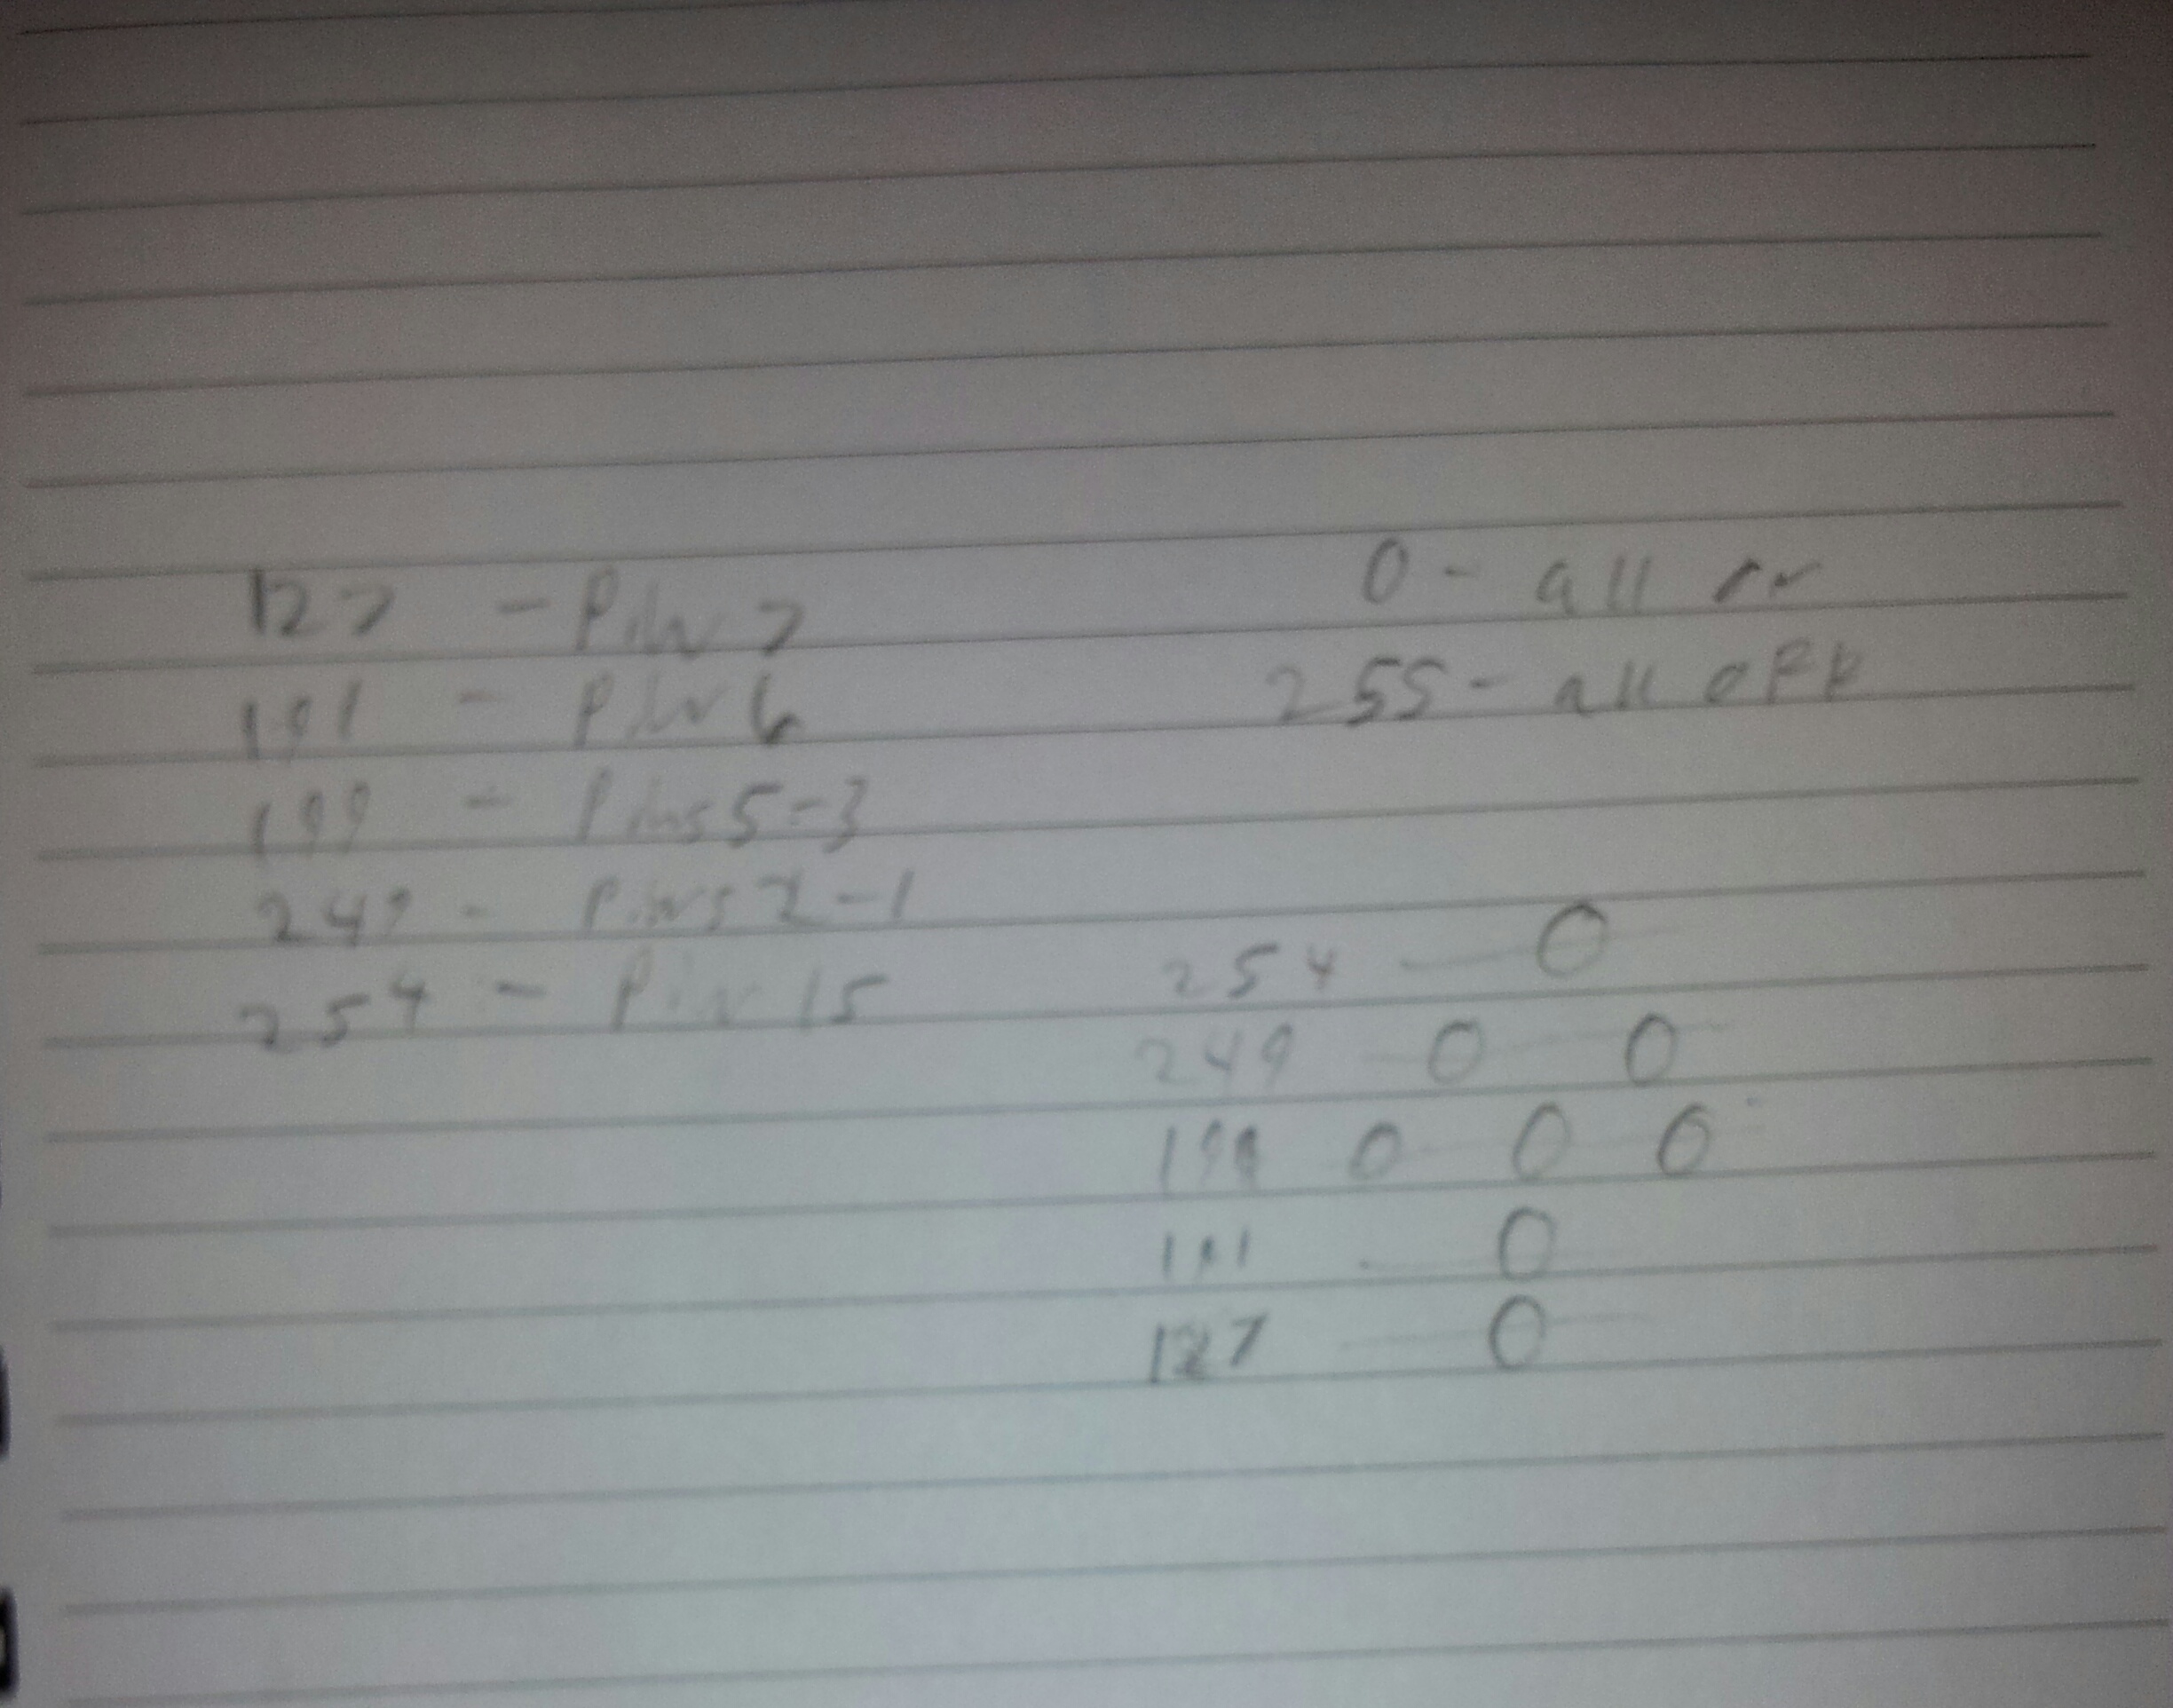 127 - Pin 7
191 - Pin 6
199 - Pins 5-3
249 - Pins 2-1
254 - Pin 15
0 - all on
255 - all off
254 - O
249 O O
199 O O O
191 O
127 O